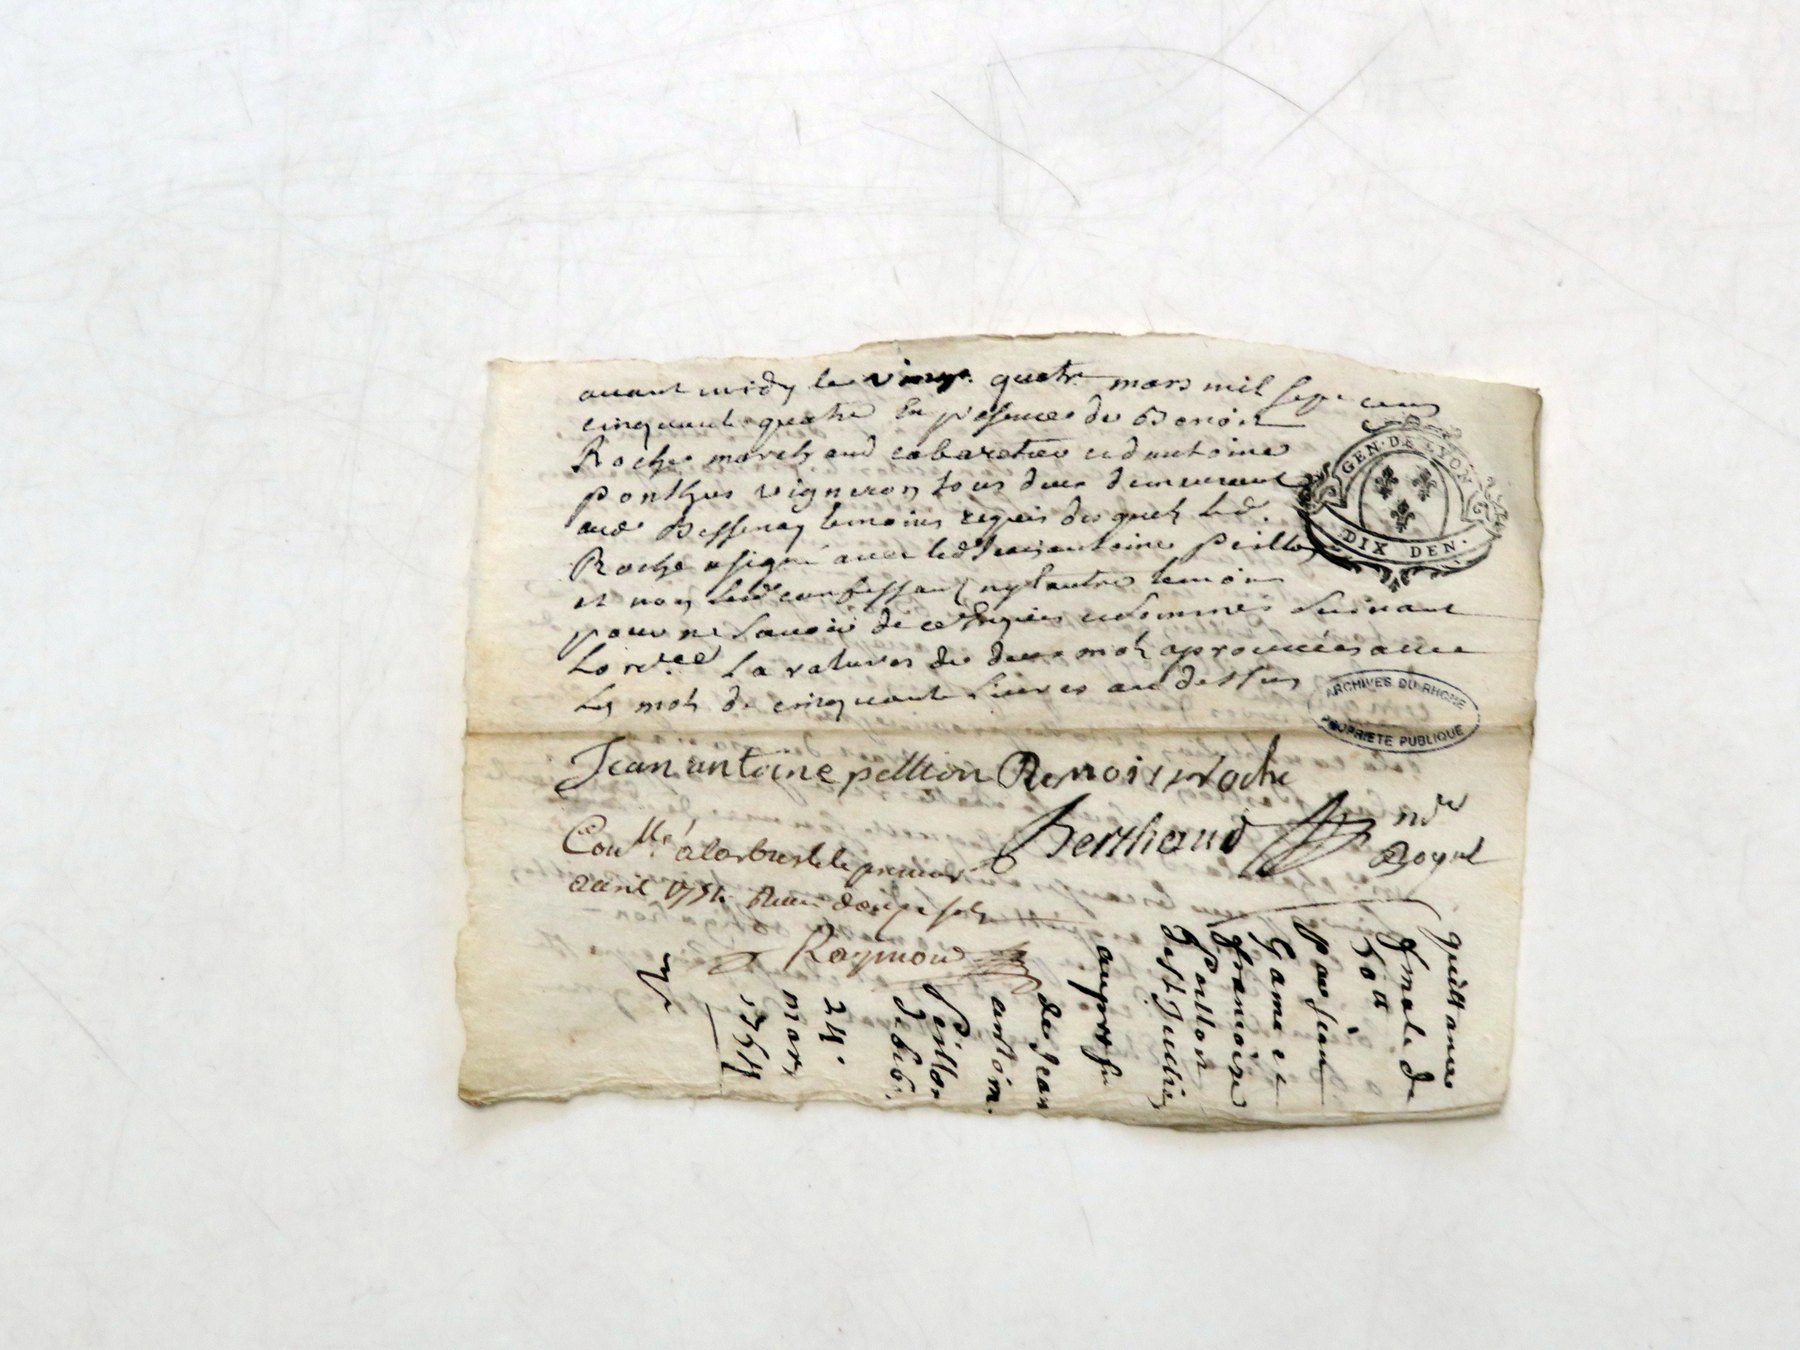 avant midy le vingt quatre mars mil sept cens
cinquante quatre En presence de Benoit
Roche marchand cabaretier et d'antoine
ponthus vigneron tous deux demeurant
aud Bessenay temoins requis desquels led.
Roche a signé avec led Jean antoine Peillon
et non led confessant ny l'autre temoin
pour ne savoir de ce Enquis et sommés suivant
Lord.ce La rature de deux mots aprouvées avec
les mots de cinquante livres au dessus
GEN. DE LYON
DIX DEN.
ARCHIVES DU RHONE
PROPRIETE PUBLIQUE
Jean antoine pellion Benoit roche
Berthaud nre
Royal
Con.llé a larbresle le premier
avril 1754 Reçu
Raymond
quittance
finale de
par jean
Game et
françoise
Peillon
de St Jullien
au profit
de Jean
antoine
Peillon
de bib.
24.
mars
1754